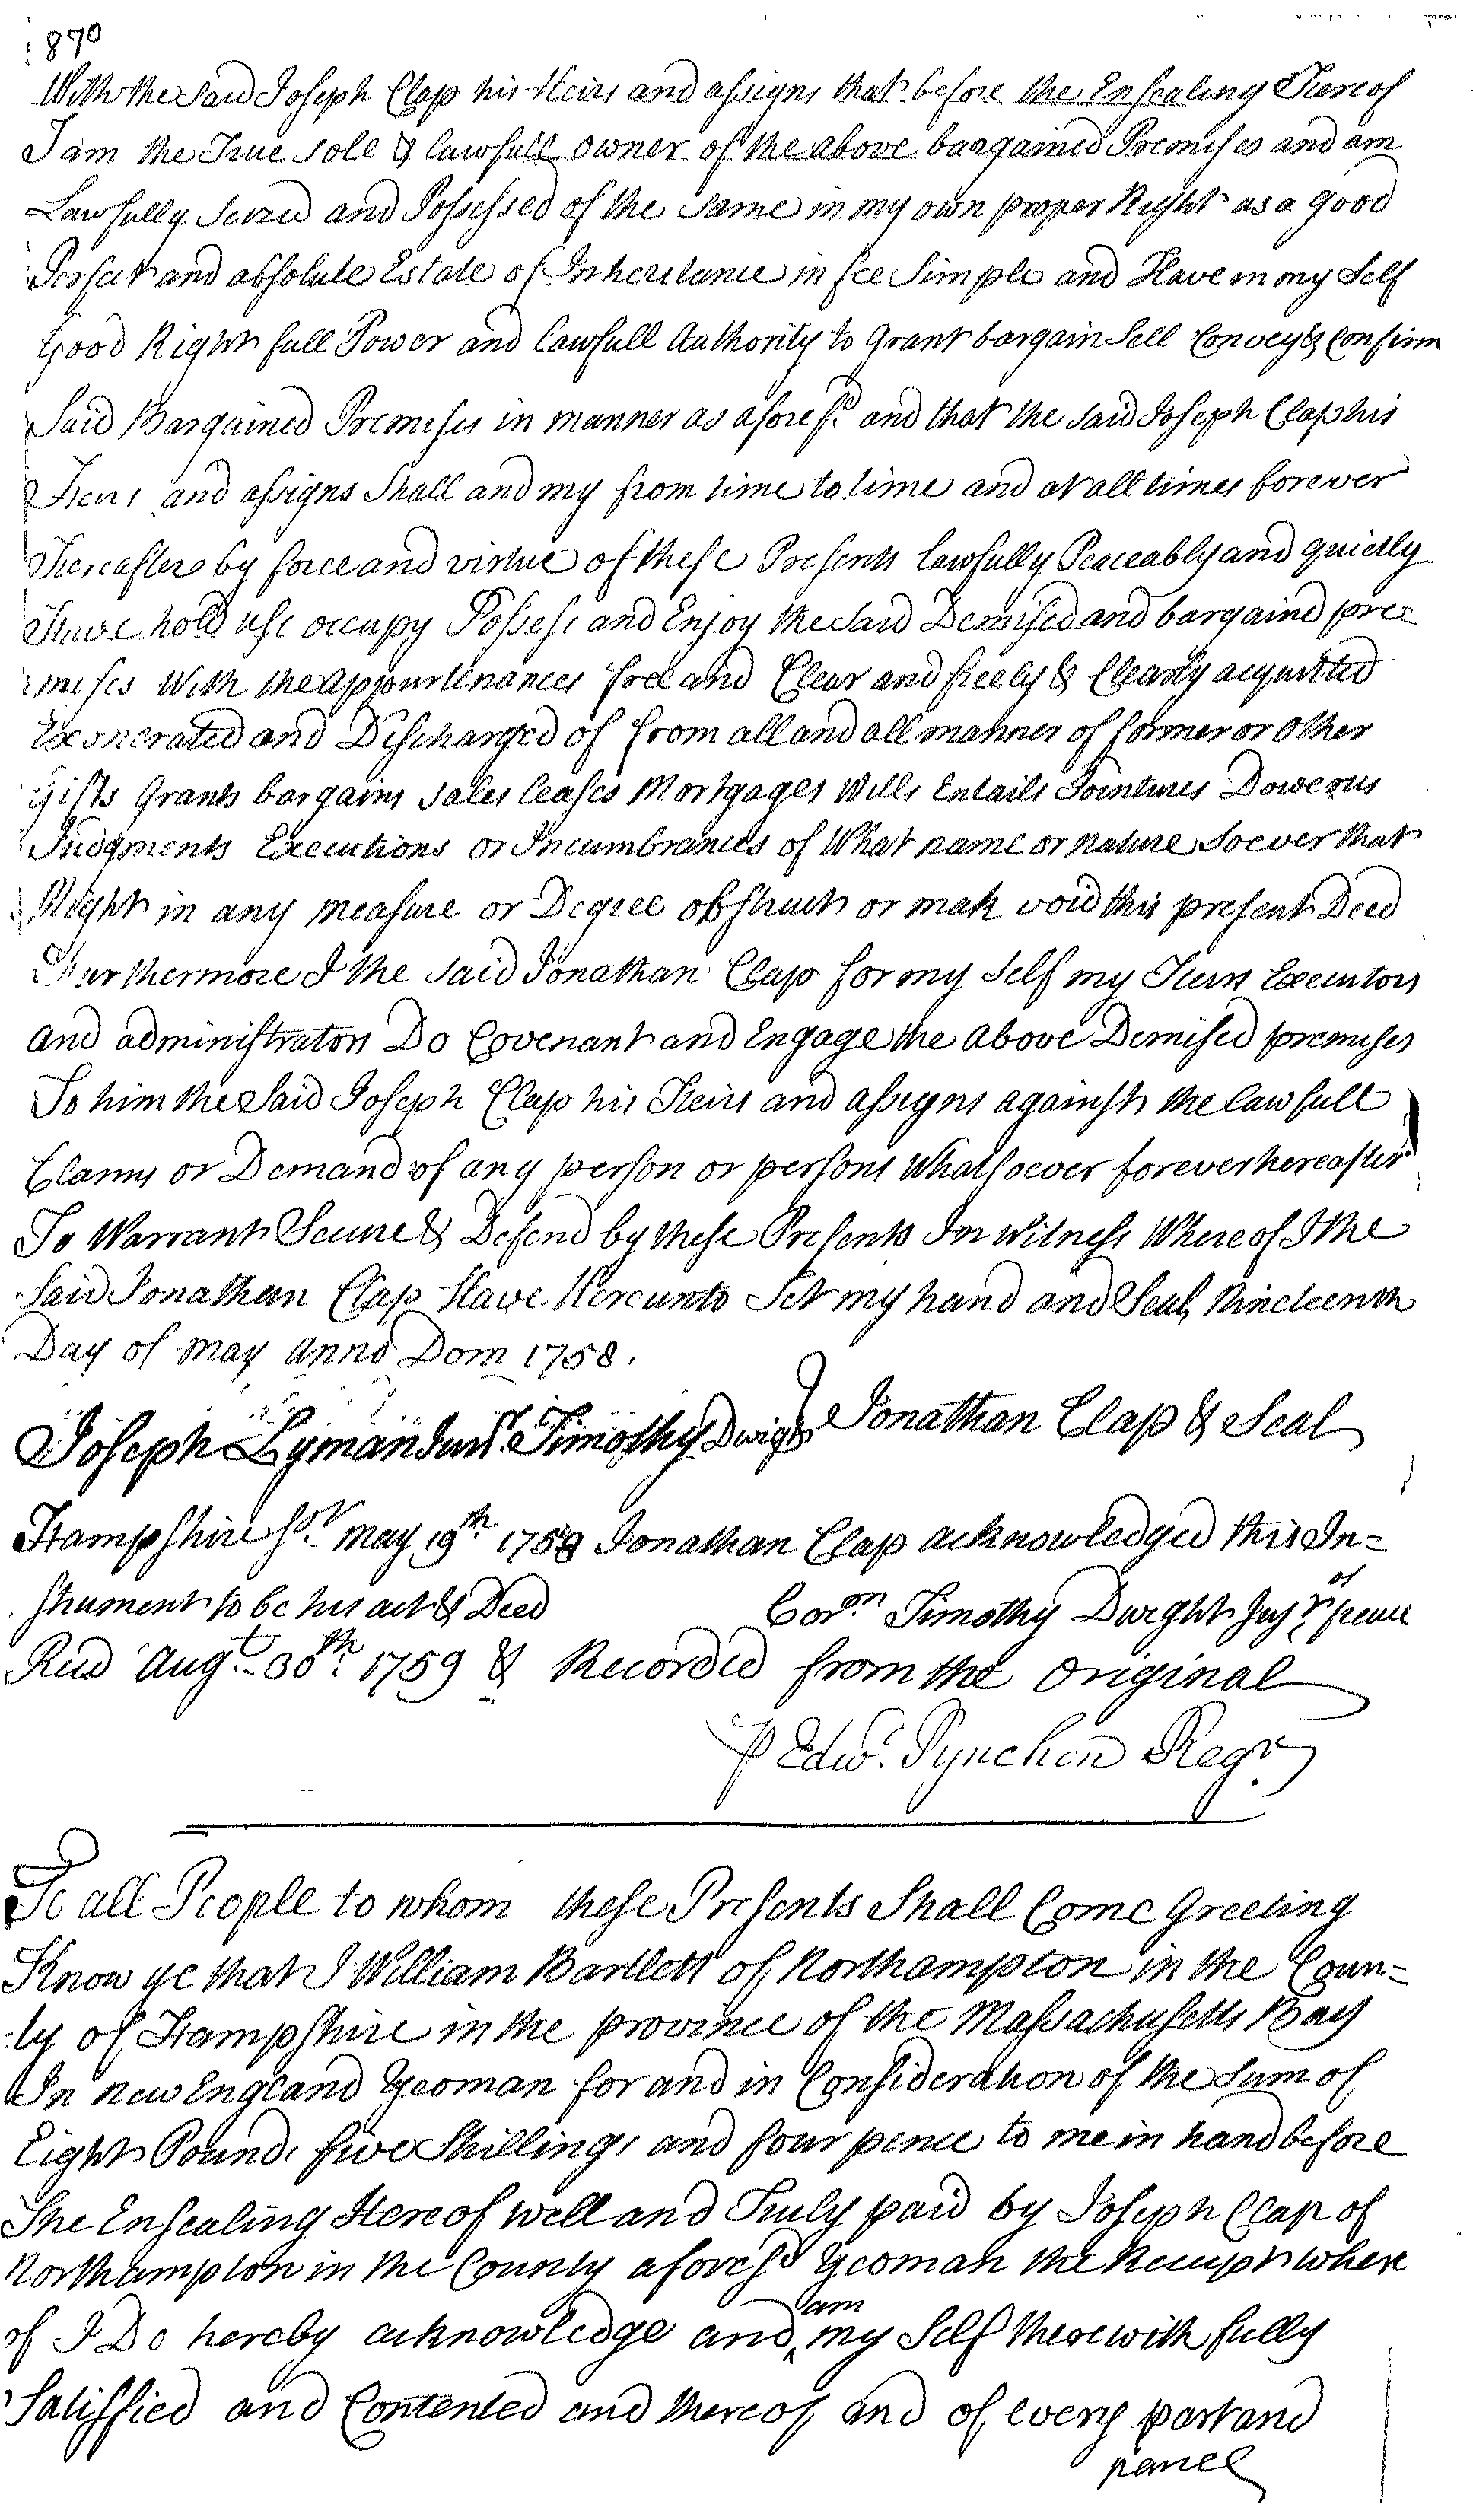 870
With the Said Joseph Clap his Heirs and assigns that before the Ensealing Hereof
I am the True sole & lawfull owner of the above bargained Premises and am
Lawfully Seized and Possessed of the same in my own proper Right as a good
Perfect and absolute Estate of Inheritance in fee Simple and Have in my Self
Good Right full Power and lawfull Authority to Grant bargain Sell Convey & Confirm
Said Bargained Premises in manner as afores.d and that the said Joseph Clap his
Heirs and assigns Shall and my from time to time and at all times forever
Hereafter by force and virtue of these Presents lawfully Peaceably and quietly
Have hold use occupy Possess and Enjoy the Said Demised and bargaind pre=
mises With the appurtenances free and Clear and freely & Clearly acquitted
Exonerated and Discharged of from all and all manner of former or other
Gifts Grants bargains sales leases Mortgages Wills Entails Jointures Doweries
Judgments Executions or Incumbrances of What name or nature Soever that
Might in any measure or Degree obstruct or mak void this present Deed
Furthermore I the said Jonathan Clap for my Self my Heirs Executors
and administrators Do Covenant and Engage the above Demised premises
To him the Said Joseph Clap his Heirs and assigns against the lawfull
Claims or Demand of any person or persons Whatsoever forever hereafter
To Warrant Secure & Defend by these Presents In Witness Whereof I the
Said Jonathan Clap Have Hereunto Set my hand and Seal Nineteenth
Day of May Anno Dom 1758.
Joseph Lyman Jun.r Timothy Dwight Jonathan Clap & Seal
Hampshire Ss. May 19th 1758 Jonathan Clap acknowledged this In=
strument to be his act & Deed Cor.m Timothy Dwight Jus of peace
Recd Aug.t 30th 1759 & Recorded from the original
P Edw.d Pynchon Regr
To all People to whom these Presents Shall Come Greeting
Know ye that I William Bartlett of Northampton in the Coun=
ty of Hampshire in the province of the Massachusetts Bay
In New England Yeoman for and in Consideration of the Sum of
Eight Pounds five Shillings and four pence to me in hand before
The Ensealing Hereof well and Truly paid by Joseph Clap of
Northampton in the County aforesd Yeoman the Receipt where
of I Do hereby acknowledge and am my Self therewith fully
Satisfied and Contented and thereof and of every part and
parcel